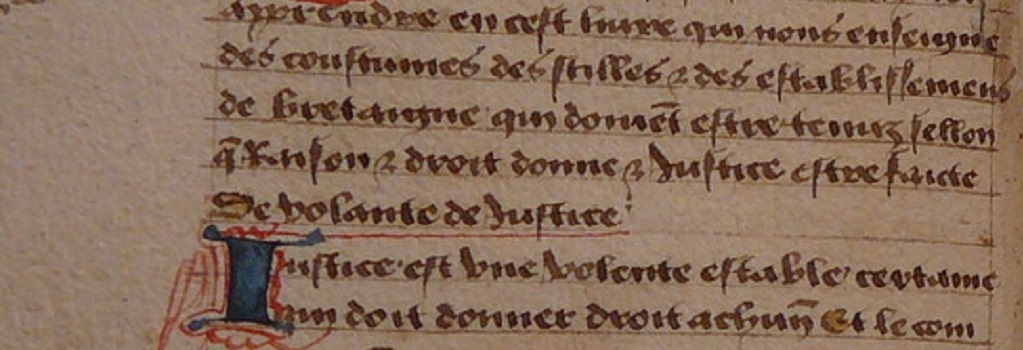 apprendre en cest livre qui nous enseigne
des coustumes des stilles & des establissemens
de bretaigne qui doivēt estre tenuz sellon
q̄ Raison & droit donne & Justice estre faicte
De volante de Justice
Iustice est vne volente estable certaine
qui doit donner droit achūn Et le com